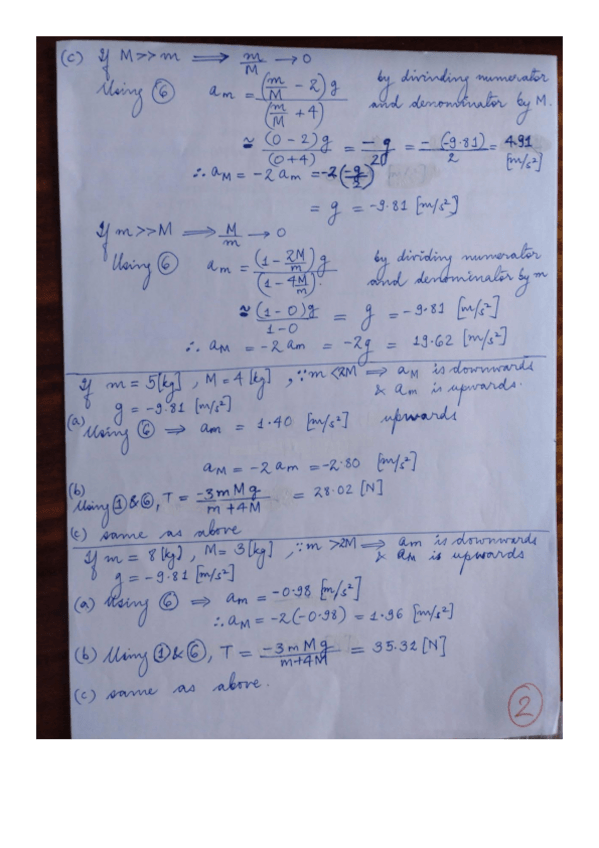 (c) If M>>m ⟹ m/M → 0
Using ⑥ am = (m/M - 2)g / (m/M + 4) by divinding numerator and denominator by M.
≃ (0-2)g / (0+4) = -g/2 = -(-9.81)/2 = 4.91 [m/s²]
∴ aM = -2am = -2(-g/2)
= g = -9.81 [m/s²]
If m>>M ⟹ M/m → 0
Using ⑥ am = (1 - 2M/m)g / (1 - 4M/m). by dividing numerator and denominator by m
≃ (1-0)g / 1-0 = g = -9.81 [m/s²]
∴ aM = -2am = -2g = 19.62 [m/s²]
If m = 5[kg], M=4 [kg], ∵ m<2M ⟹ aM is downwards
& am is upwards.
g = -9.81 [m/s²]
(a) Using ⑥ ⟹ am = 1.40 [m/s²] upwards
aM = -2am = -2.80 [m/s²]
(b)
Using ①&⑥, T = -3mMg / m+4M = 28.02 [N]
(c) same as above
If m = 8[kg], M=3[kg], ∵ m>2M ⟹ am is downwards
& aM is upwards
g = -9.81 [m/s²]
(a) Using ⑥ ⟹ am = -0.98 [m/s²]
∴ aM = -2(-0.98) = 1.96 [m/s²]
(b) Using ①&⑥, T = -3mMg / m+4M = 35.32 [N]
(c) same as above.
2